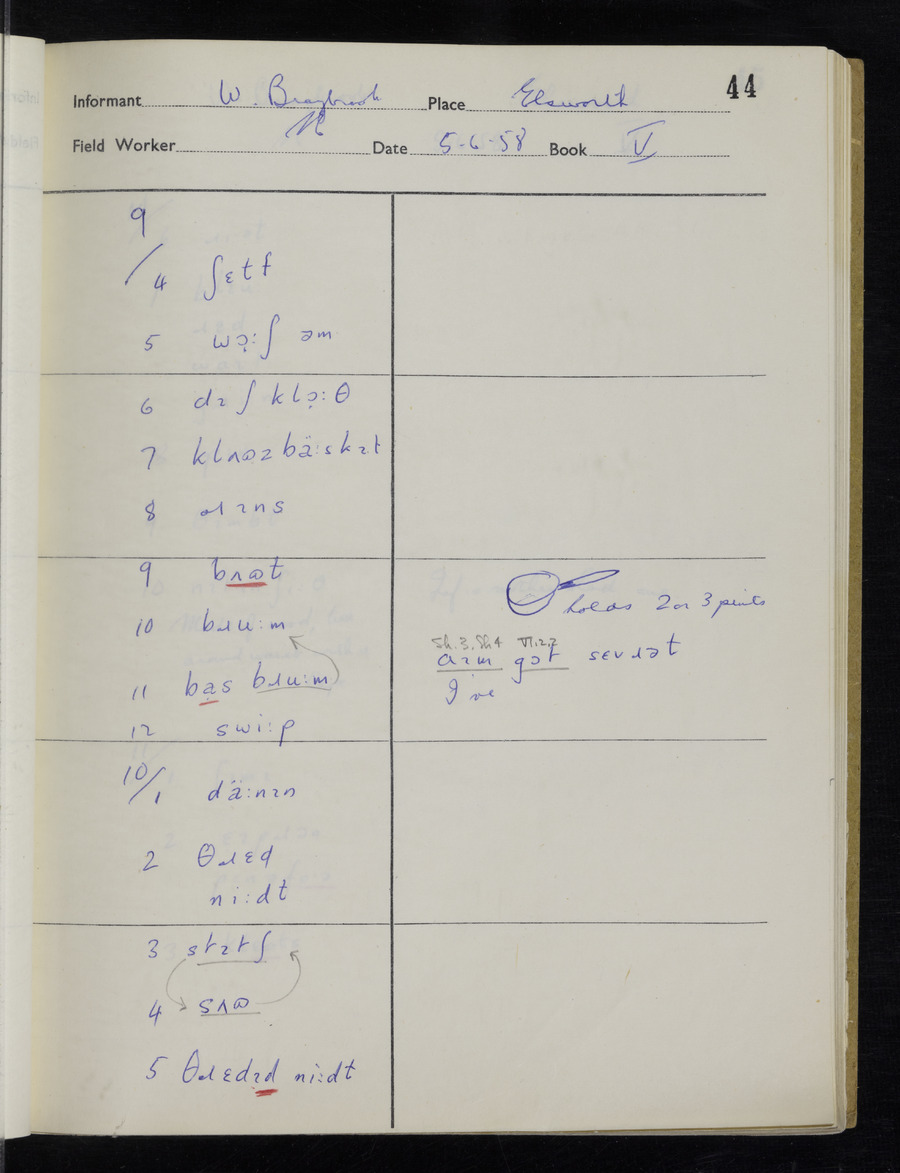 44
Informant W. Braybrook Place Elsworth
Field Worker N Date 5-6-58 Book V
9
/4 ʃɛtf
5 wɔ̣:ʃ əm
6 dɪʃ klɔ̣:θ
7 klʌɷzbä:skɪt
8 ɹɪns
9 bʌɷt
holds 2 or 3 pints
10 bɹu:m
Sh.3, Sh4 VI.2,2
aɪm gɔt sevɹət
I've
11 bas bɹu:m
12 swi:p
10/1 dä:nɪn
2 θɹɛd
ni:dt
3 stɪtʃ
4 sʌɷ
5 θɹɛdɪd ni:dt